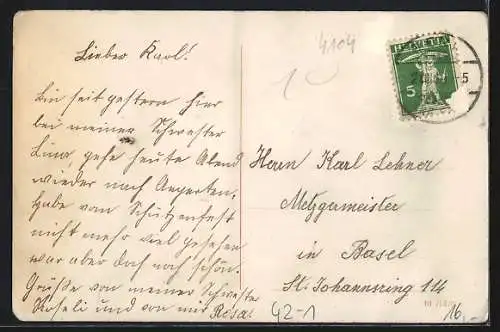 4104
HELVETIA
5
5
Lieber Karl!
Bin seit gestern hier
bei meiner Schwester
Lina, gehe heute Abend
wieder nach Aegerten.
Habe vom Schützenfest
nicht mehr viel gesehen
war aber doch noch schön.
Grüße von meiner Schwester
Roseli und von mir Rosa.
Herrn Karl Lehner
Metzgermeister
in Basel
St. Johannsring 114
42-1
16,-